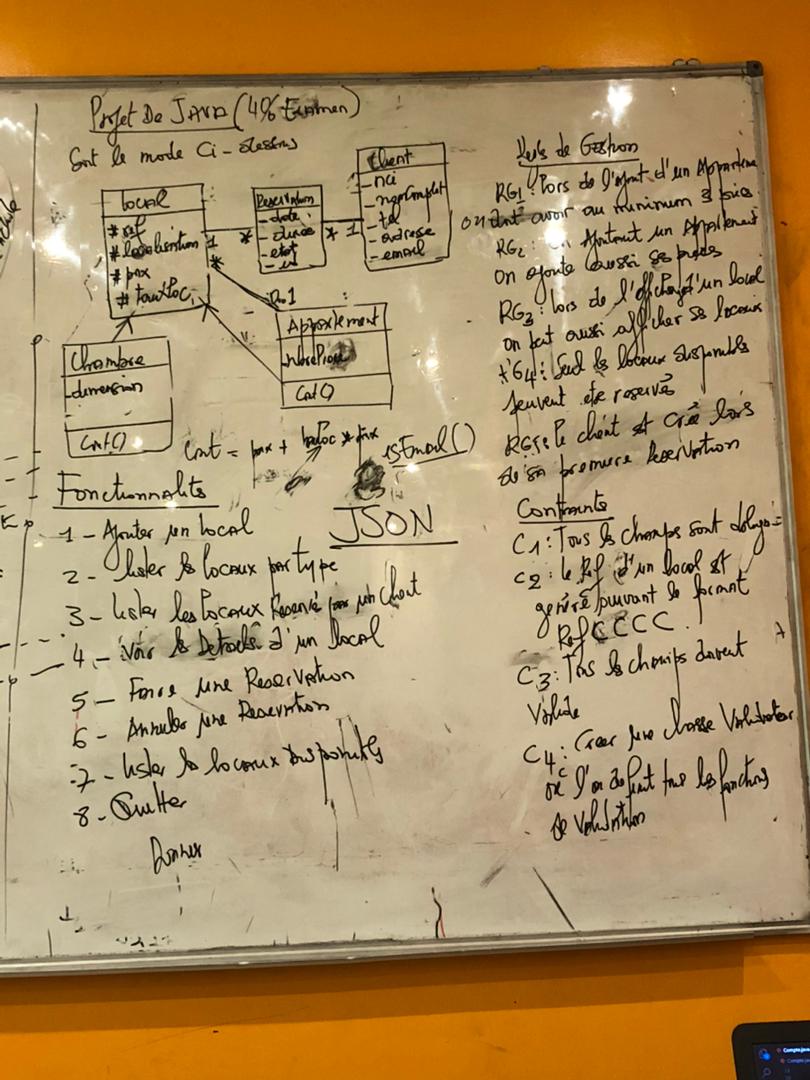 Projet De JAVA (40% Examen)
Soit le mode Ci-dessous
Local
# ref
# localisation
# prix
# tauxLoc
1
*
*
Reservation
- date
- durée
- etat
- id
* 1
Client
- nci
- nomComplet
- tel
- adresse
- email
0..1
Chambre
- dimension
Cout()
Appartement
- nbrePiece
Cout()
Cout = prix + tauxLoc * prix
isEmail()
Fonctionnalités
JSON
1 - Ajouter un Local
2 - Lister les locaux par type
3 - Lister les Locaux Reservé par un Client
4 - Voir les Details d'un local
5 - Faire une Reservation
6 - Annuler une Reservation
7 - Lister les locaux Disponibles
8 - Quitter
Regles de Gestion
RG1 : Lors de l'ajout d'un Apparteme
on doit avoir au minimum 3 pièces
RG2 : En Ajoutant un Appartement
On ajoute aussi ses pièces
RG3 : Lors de l'affichage d'un local
on peut aussi afficher ses locaux
RG4 : Seul les locaux disponibles
peuvent être reservés
RG5 : Le client est crée lors
de sa premiere Reservation
Contraintes
C1 : Tous les champs sont obligo=
C2 : le Ref d'un local est
généré suivant le format
Ref CCCC.
C3 : Tous les champs doivent
Valide
C4 : Creer une classe Validateur
où l'on definit tous les fonctions
de Validation
Compte.java